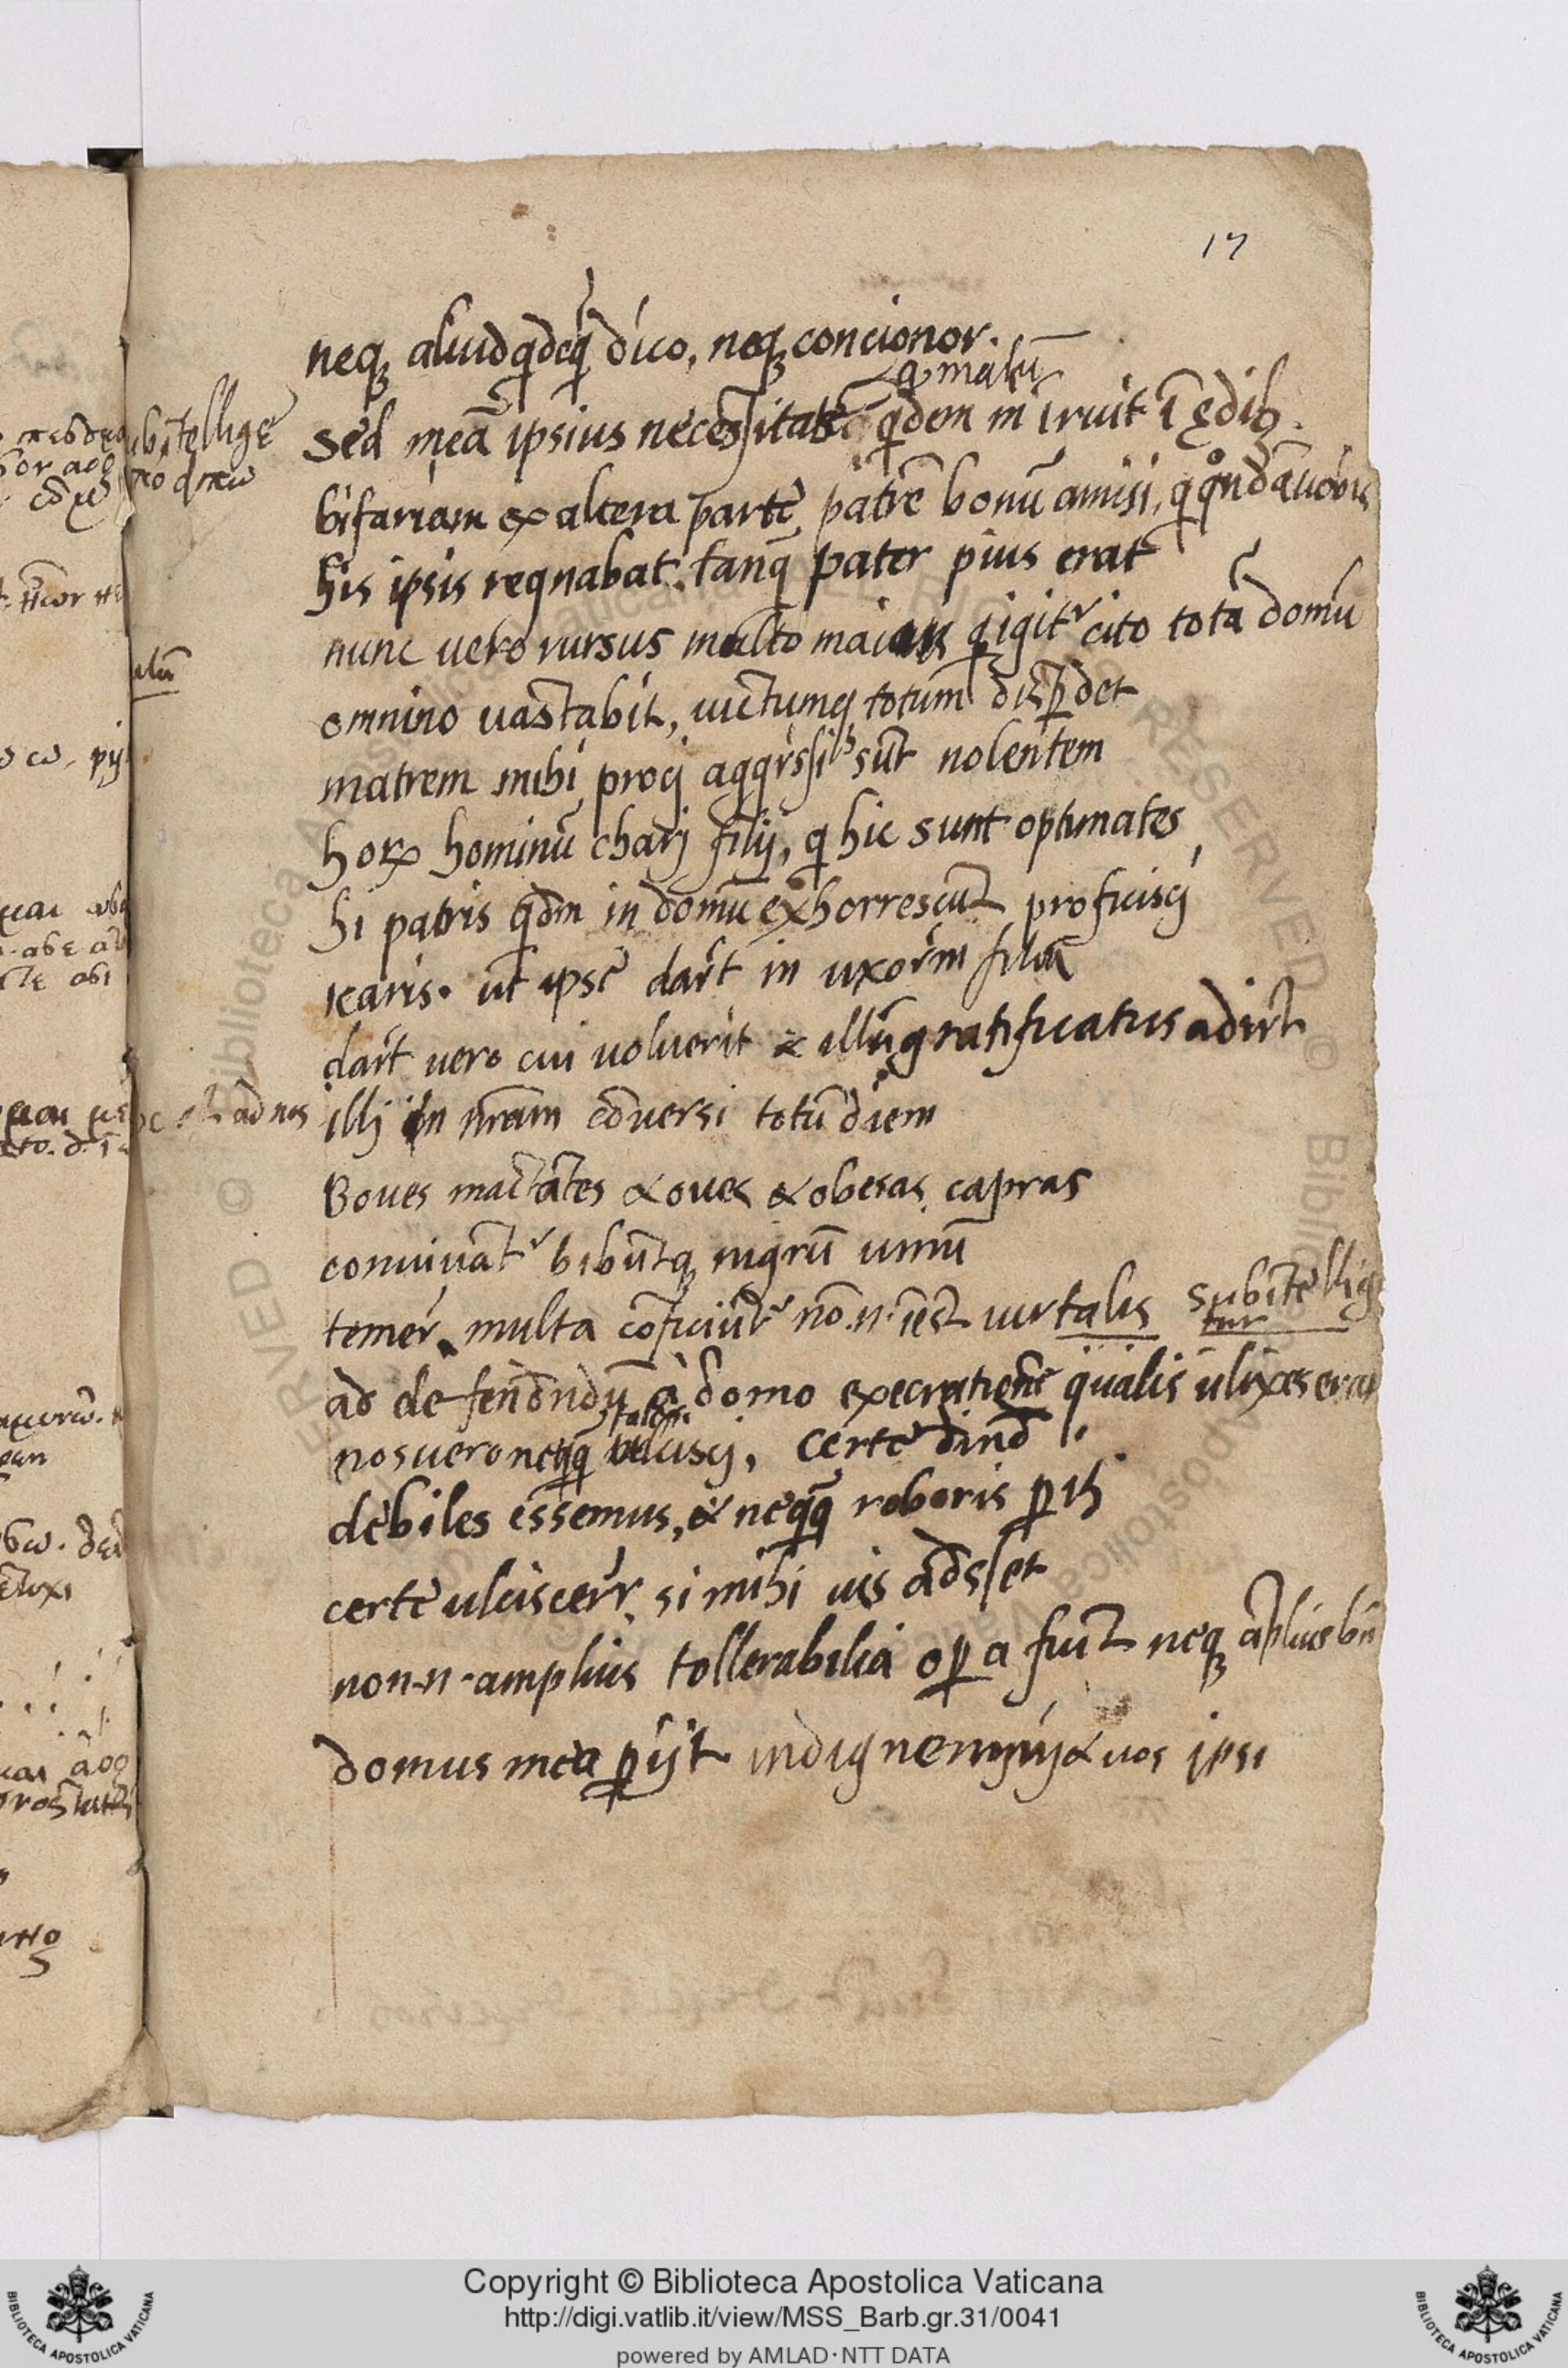 17
neq; aliud qdcq̃ dico, neq; concionor.
q malũ
sed meã ipsius necessitatẽ qdem m̃ iruit ĩ ędib;.
bifariam ex altera partẽ, patrẽ bonũ amisi, q qndã uobis
his ipsis regnabat. tanq̃ pater pius erat
nunc uero rursus multo maius q igitr cito totã domũ
omnino uastabit, uictumq; totum disp̱det
matrem mihi procj aggrssi sũt nolentem
horꝝ hominũ charj filij, q hic sunt optimates
hi patris qdm in domũ exhorrescũt proficiscj
icaris. ut ipse darẽt in uxorẽm filiã
darẽt uero cui voluerit & illũ gratificatus adirẽt
illj in nr̃am cõversi totũ diem
Boues mactãtes & oues & obesas capras
conuiuãtr bibũtq; nigrũ uinũ
temerẽ, multa cõficiũtr nõ .n. ĩest uir talis subĩtellig
tur
ad defendẽndũ a domo execrationẽ qualis ulixes erat
talem
nos uero neqq̃ ulciscj, certẽ dind
debiles essemus, & neqq̃ roboris p̱iti
certe ulciscerer, si mihi uis adsset
non .n. amplius tollerabilia op̱a fiũt neq; ãplius bñ
domus mea p̱ijt indignemynj & uos ipsi
ubĩtelligẽ
ad nos
Copyright © Biblioteca Apostolica Vaticana
http://digi.vatlib.it/view/MSS_Barb.gr.31/0041
powered by AMLAD·NTT DATA